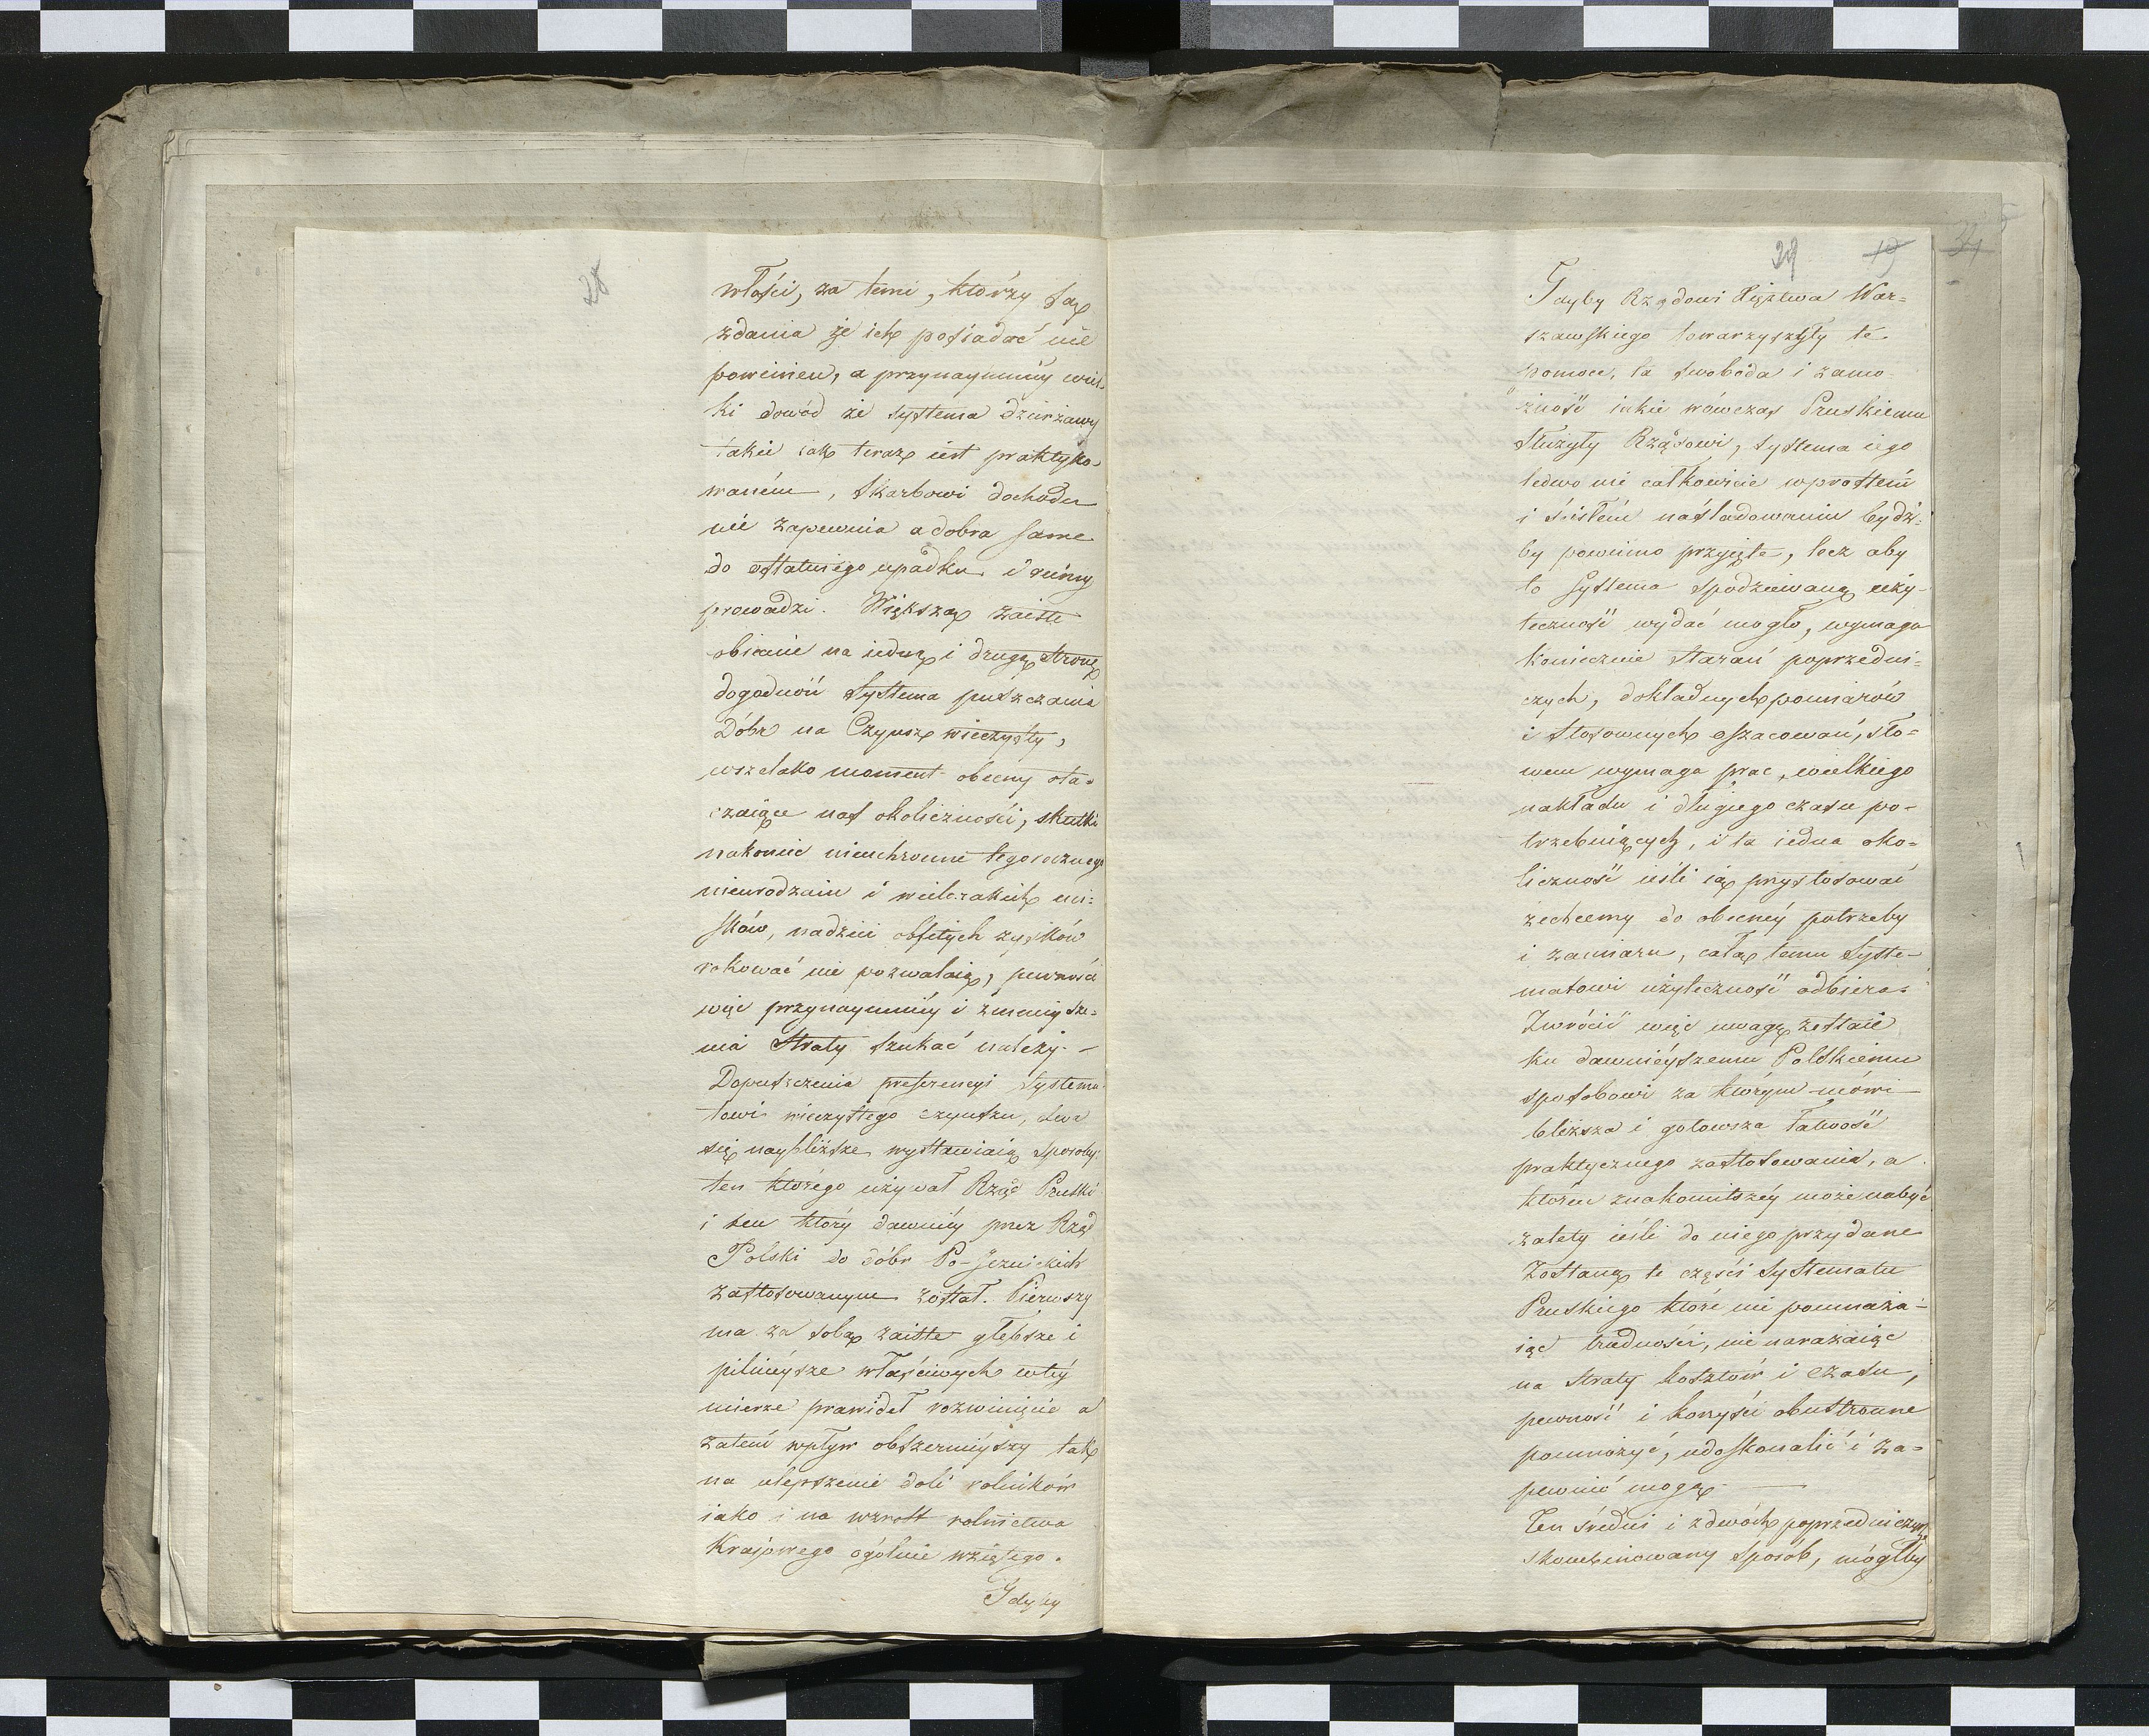 28
włości, za temi, którzy są
zdania że ich posiadać nie
powinien, a przynaymniey wiel-
ki dowód że systema dzierżawy
takie iak teraz iest praktyko-
waném, Skarbowi dochodu
nie zapewnia a dobra same
do ostatniego upadku i ruiny
prowadzi. Większą zaiste
obiecuie na iedną i drugą stronę
dogodność Systema puszczania
Dóbr na Czynsz wieczysty,
wszelako moment obecny ota-
czaiące nas okoliczności, skutki
nakoniec nieuchronne tegorocznego
nieurodzaiu i wielorakich uci-
sków, nadziei obfitych zysków
rokować nie pozwalaią, pewności
więc przynaymniey i zmnieysze-
nia Straty szukać należy. —
Dopuszczenia preferencyi Systema-
towi wieczystego czynszu, dwa
się naybliższe wystawiaią sposoby:
ten którego używał Rząd Pruski
i ten który dawniey przez Rząd
Polski do dóbr Po-Jezuickich
zastosowanym został. Pierwszy
ma za sobą zaiste głębsze i
pilnieysze właściwych w tey
mierze prawideł rozwinięcie a
zatem wpływ obszernieyszy tak
na ulepszenie doli rolników
iako i na wzrost rolnictwa
Kraiowego ogólnie wziętego.
Gdyby
29 19 34
Gdyby Rządowi Xięztwa War-
szawskiego towarzyszyły te
pomoce, ta swoboda i zamo-
żność iakie wówczas Pruskiemu
służyły Rządowi, systema iego
ledwo nie całkowicie w prostem
i ścisłém naśladowaniu bydź-
by powinno przyięte, lecz aby
to Systema spodziewaną uży-
teczność wydać mogło, wymaga
koniecznie starań poprzedni-
czych, dokładnych pomiarów
i stosownych oszacowań, sło-
wem wymaga prac, wielkiego
nakładu i długiego czasu po-
trzebuiących, i ta iedna oko-
liczność ieśli ią przystosować
zechcemy do obecney potrzeby
i zamiaru, całą temu Syste-
matowi użyteczność odbiera.
Zwrócić więc uwagę zostaie
ku dawnieyszemu Polskiemu
sposobowi za którym mówi
bliższa i gotowsza łatwość
praktycznego zastosowania, a
któren znakomitszey może nabyć
zalety ieśli do niego przydane
zostaną te części Systematu
Pruskiego które nie pomnaża-
iąc trudności, nie narażaiąc
na straty kosztów i czasu,
pewność i korzyści obustronne
pomnożyć, udoskonalić i za-
pewnić mogą. —
Ten średni i z dwóch poprzedniczych
skombinowany sposób, mógłby